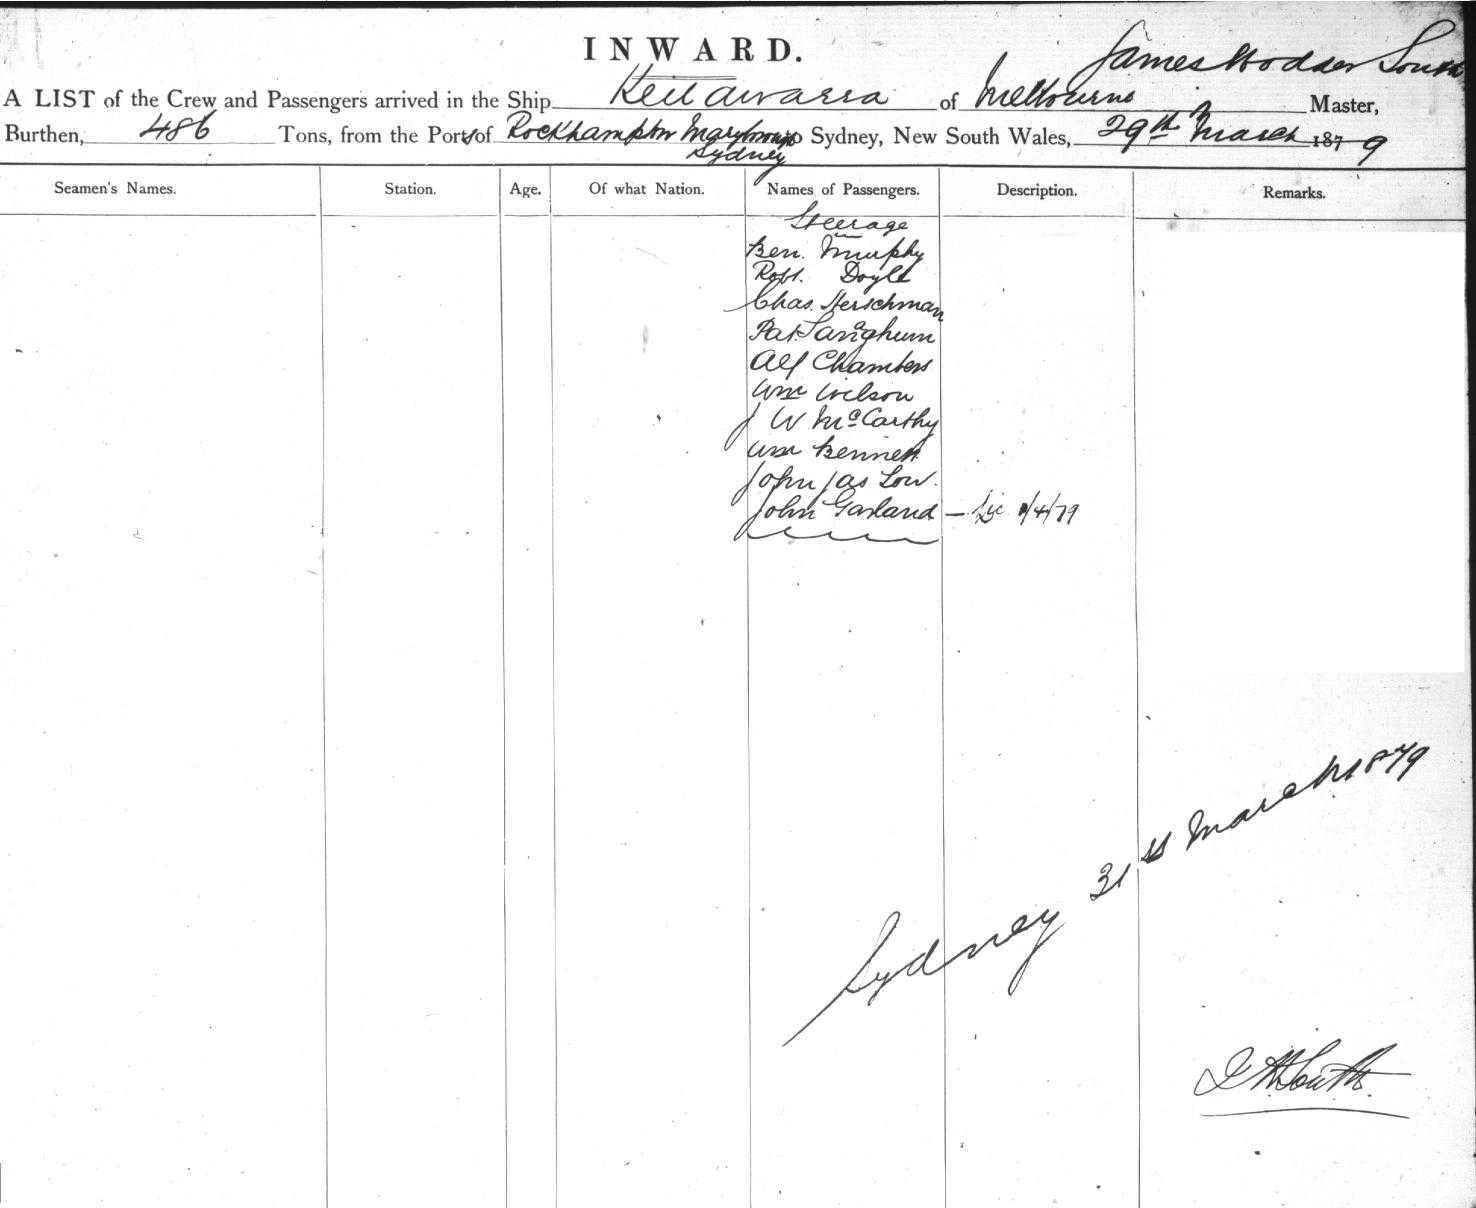 INWARD.
James Hodder South
A LIST of the Crew and Passengers arrived in the Ship Keilawarra of Melbourne Master,
Burthen, 486 Tons, from the Ports of Rockhampton Maryboro to Sydney, New South Wales, 29th March 1879
Sydney
Seamen's Names. Station. Age. Of what Nation. Names of Passengers. Description. Remarks.
Steerage
Ben. Murphy
Robt. Doyle
Chas. Herschman
Pat
Alf Chambers
Wm Wilson
J W McCarthy
Wm Bennett
John Jas Low.
John Garland — 1/4/79
Sydney 31st March 1879
J H South